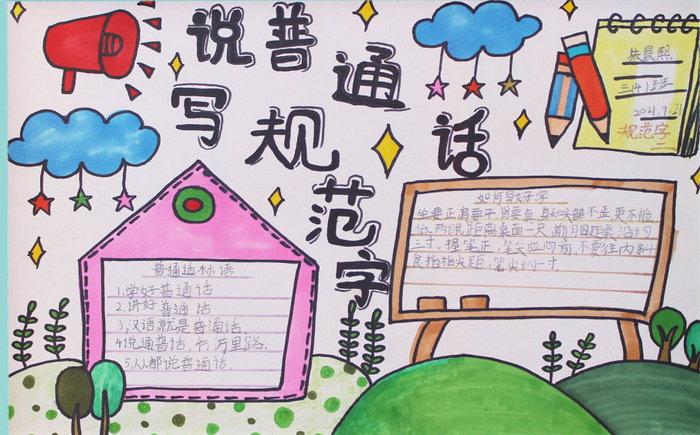 说普通话
写规范字
朱晨熙
三(4)班
2021.9.21
规范字
普通话标语
1.学好普通话
2.讲好普通话
3.汉语就是普通话
4说通普话,万里路.
5.人人都说普通话.
如何写好字
坐要正,肩要平,背要直,身双不歪更不能
低,两眼距离桌面一尺,前胸距桌沿约
三寸。握笔正,笔尖应向前,不要往内斜
食指尖距,笔尖约一寸.